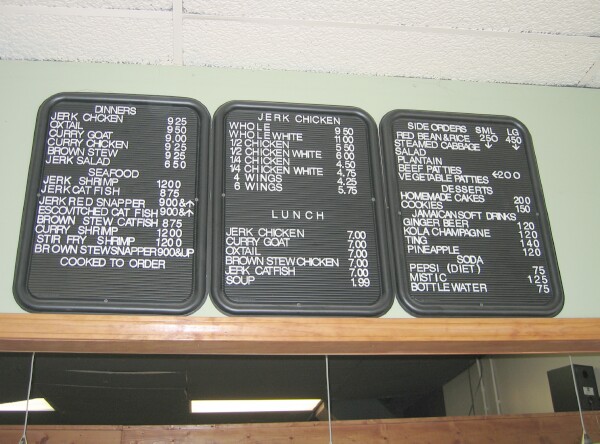 DINNERS
JERK CHICKEN 9 25
OXTAIL 9 50
CURRY GOAT 9 00
CURRY CHICKEN 9 25
BROWN STEW 9 25
JERK SALAD 6 50
SEAFOOD
JERK SHRIMP 1200
JERK CAT FISH 875
JERK RED SNAPPER 900&↑
ESCOVITCHED CAT FISH 900&↑
BROWN STEW CATFISH 875
CURRY SHRIMP 1200
STIR FRY SHRIMP 1200
BROWN STEW SNAPPER 900&UP
COOKED TO ORDER
JERK CHICKEN
WHOLE 9 50
WHOLE WHITE 11 00
1/2 CHICKEN 5.50
1/2 CHICKEN WHITE 6.00
1/4 CHICKEN 4 50
1/4 CHICKEN WHITE 4.75
4 WINGS 4.25
6 WINGS 5.75
LUNCH
JERK CHICKEN 7.00
CURRY GOAT 7.00
OXTAIL 7.00
BROWN STEW CHICKEN 7.00
JERK CATFISH 7.00
SOUP 1.99
SIDE ORDERS SML LG
RED BEAN & RICE 250 450
STEAMED CABBAGE ↓ ↓
SALAD
PLANTAIN
BEEF PATTIES
VEGETABLE PATTIES 200
DESSERTS
HOMEMADE CAKES 200
COOKIES 150
JAMAICAN SOFT DRINKS
GINGER BEER 120
KOLA CHAMPAGNE 120
TING 140
PINEAPPLE 120
SODA
PEPSI (DIET) 75
MISTIC 125
BOTTLE WATER 75